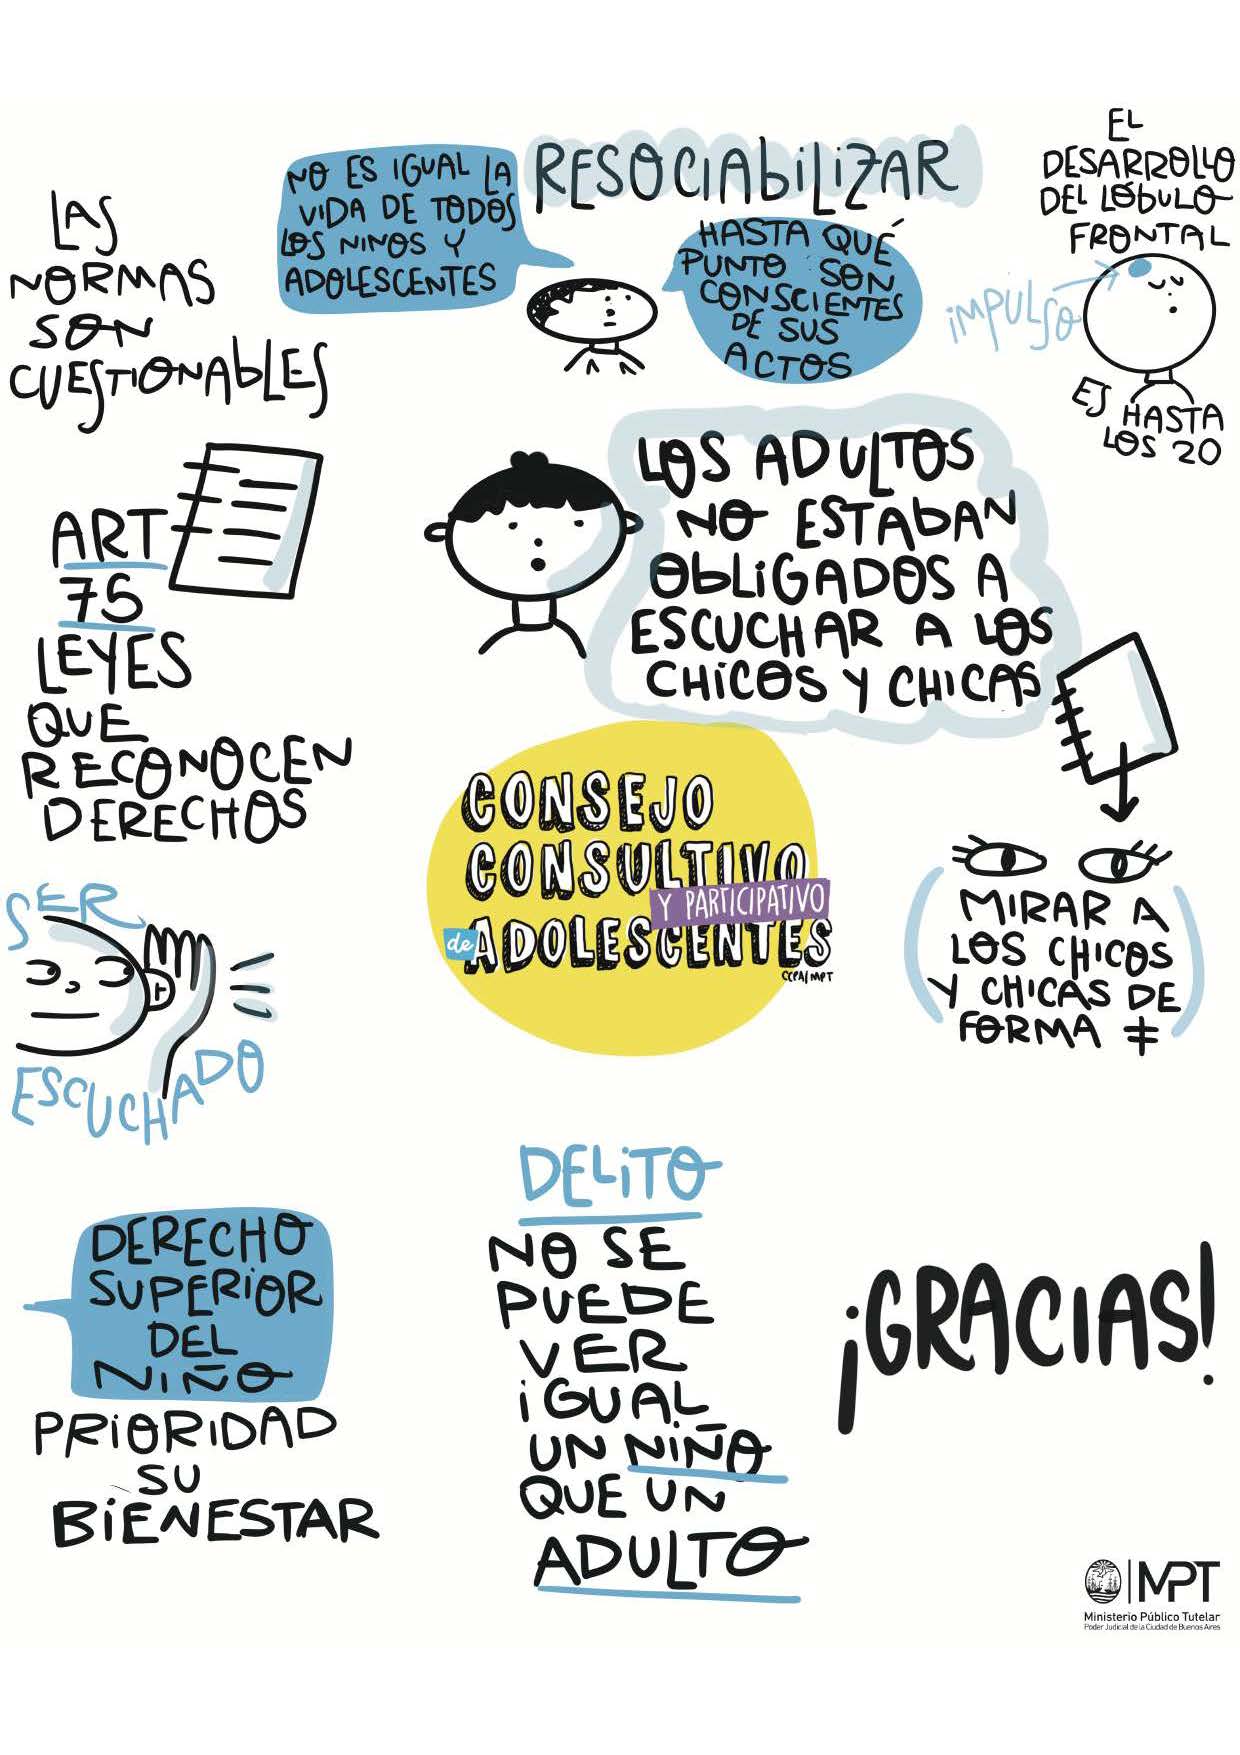 LAS
NORMAS
SON
CUESTIONAbLES
NO ES IGUAL LA
VIDA DE TODOS
LOS NINOS Y
ADOLESCENTES
RESOCIAbiLiZAR
HASTA QUÉ
PUNTO SON
CONSCIENTES
DE SUS
ACTOS
EL
DESARROLLO
DEL LÓBULO
FRONTAL
iMPULSO
ES HASTA
LOS 20
ART
75
LEYES
QUE
RECONOCEN
DERECHOS
LOS ADULTOS
NO ESTAbAN
ObLiGADOS A
ESCUCHAR A LOS
CHiCOS Y CHICAS
CONSEJO
CONSULTIVO
Y PARTICIPATIVO
de ADOLESCENTES
CCPA/MPT
MIRAR A
LOS CHICOS
Y CHICAS DE
FORMA ≠
SER
ESCUCHADO
DERECHO
SUPERiOR
DEL
NIÑO
PRiORIDAD
SU
BiENESTAR
DELiTO
NO SE
PUEDE
VER
iGUAL
UN NIÑO
QUE UN
ADULTO
¡GRACIAS!
MPT
Ministerio Público Tutelar
Poder Judicial de la Ciudad de Buenos Aires